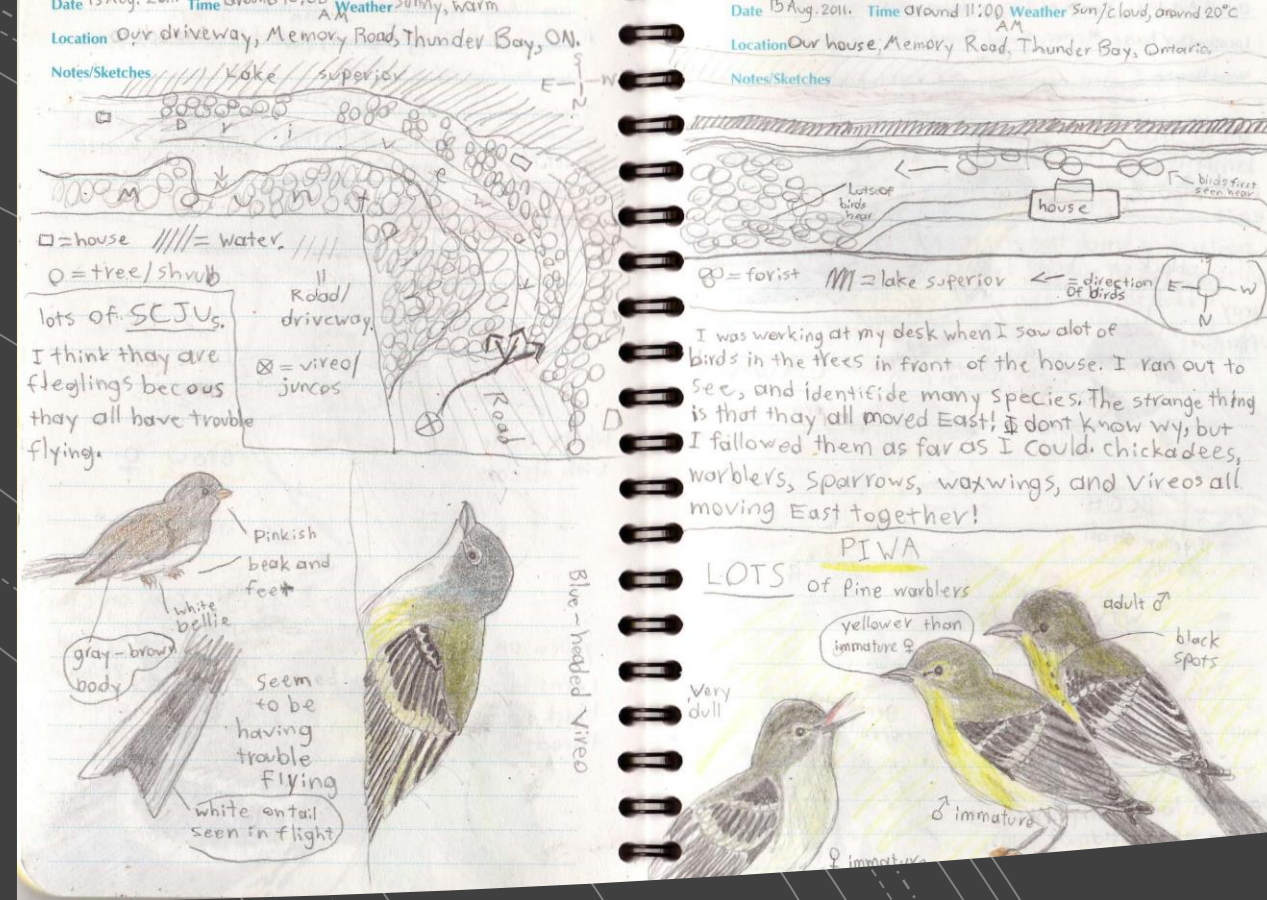 Date 15 Aug. 2011. Time around Weather sunny, warm
AM
Location Our driveway, Memory Road, Thunder Bay, ON.
Notes/Sketches Lake superior
S
E W
N
D r i v e w y
M o u n t
□=house ////= water.
O=tree/shrub
= Rolad/
driveway.
lots of SCJUs.
I think thay are
fleglings becous
thay all have trouble
flying.
⊗ = vireo/
juncos
Road
Pinkish
beak and
feet
white
bellie
gray-brown
body
seem
to be
having
trouble
flying
white on tail
seen in flight
Blue-headed Vireo
Date 15 Aug. 2011. Time around 11:00 Weather sun/cloud, around 20°C
AM
Location Our house, Memory Road, Thunder Bay, Ontario.
Notes/Sketches
Lots of
birds
hear
birds first
seen hear
house
= forist = lake superior ← = direction
of birds
E W
N
I was working at my desk when I saw alot of
birds in the trees in front of the house. I ran out to
see, and identifide many species. The strange thing
is that thay all moved East! I dont know wy, but
I fallowed them as far as I could. chickadees,
warblers, sparrows, waxwings, and vireos all
moving East together!
PIWA
LOTS of Pine warblers
yellower than
immature ♀
adult ♂
black
spots
Very
dull
♂ immature
♀ immature